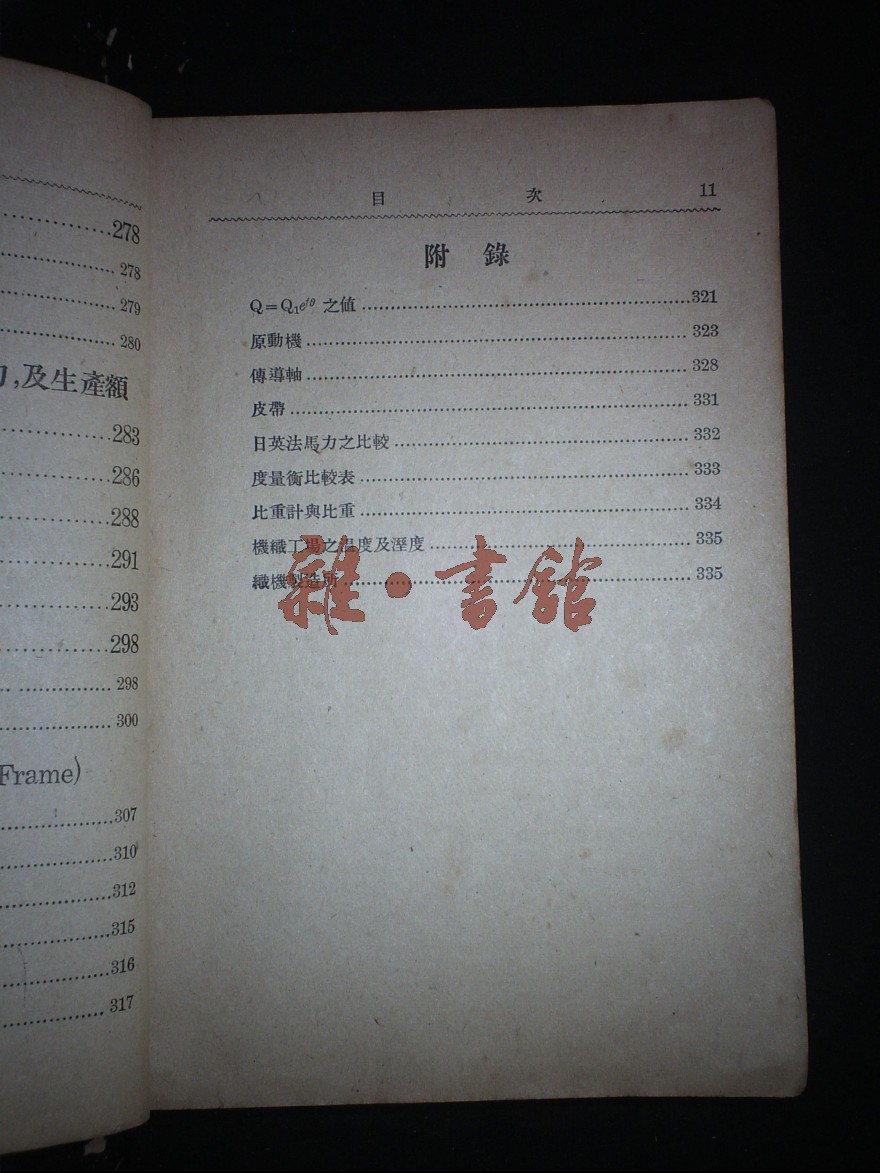 278
278
279
280
,及生產額
283
286
288
291
293
298
298
300
Frame)
307
310
312
315
316
317
目 次 11
附錄
Q=Q₁eᶠᶿ 之値 321
原動機 323
傳導軸 328
皮帶 331
日英法馬力之比較 332
度量衡比較表 333
比重計與比重 334
機織工場之温度及溼度 335
織機製造所 335
雜·書館